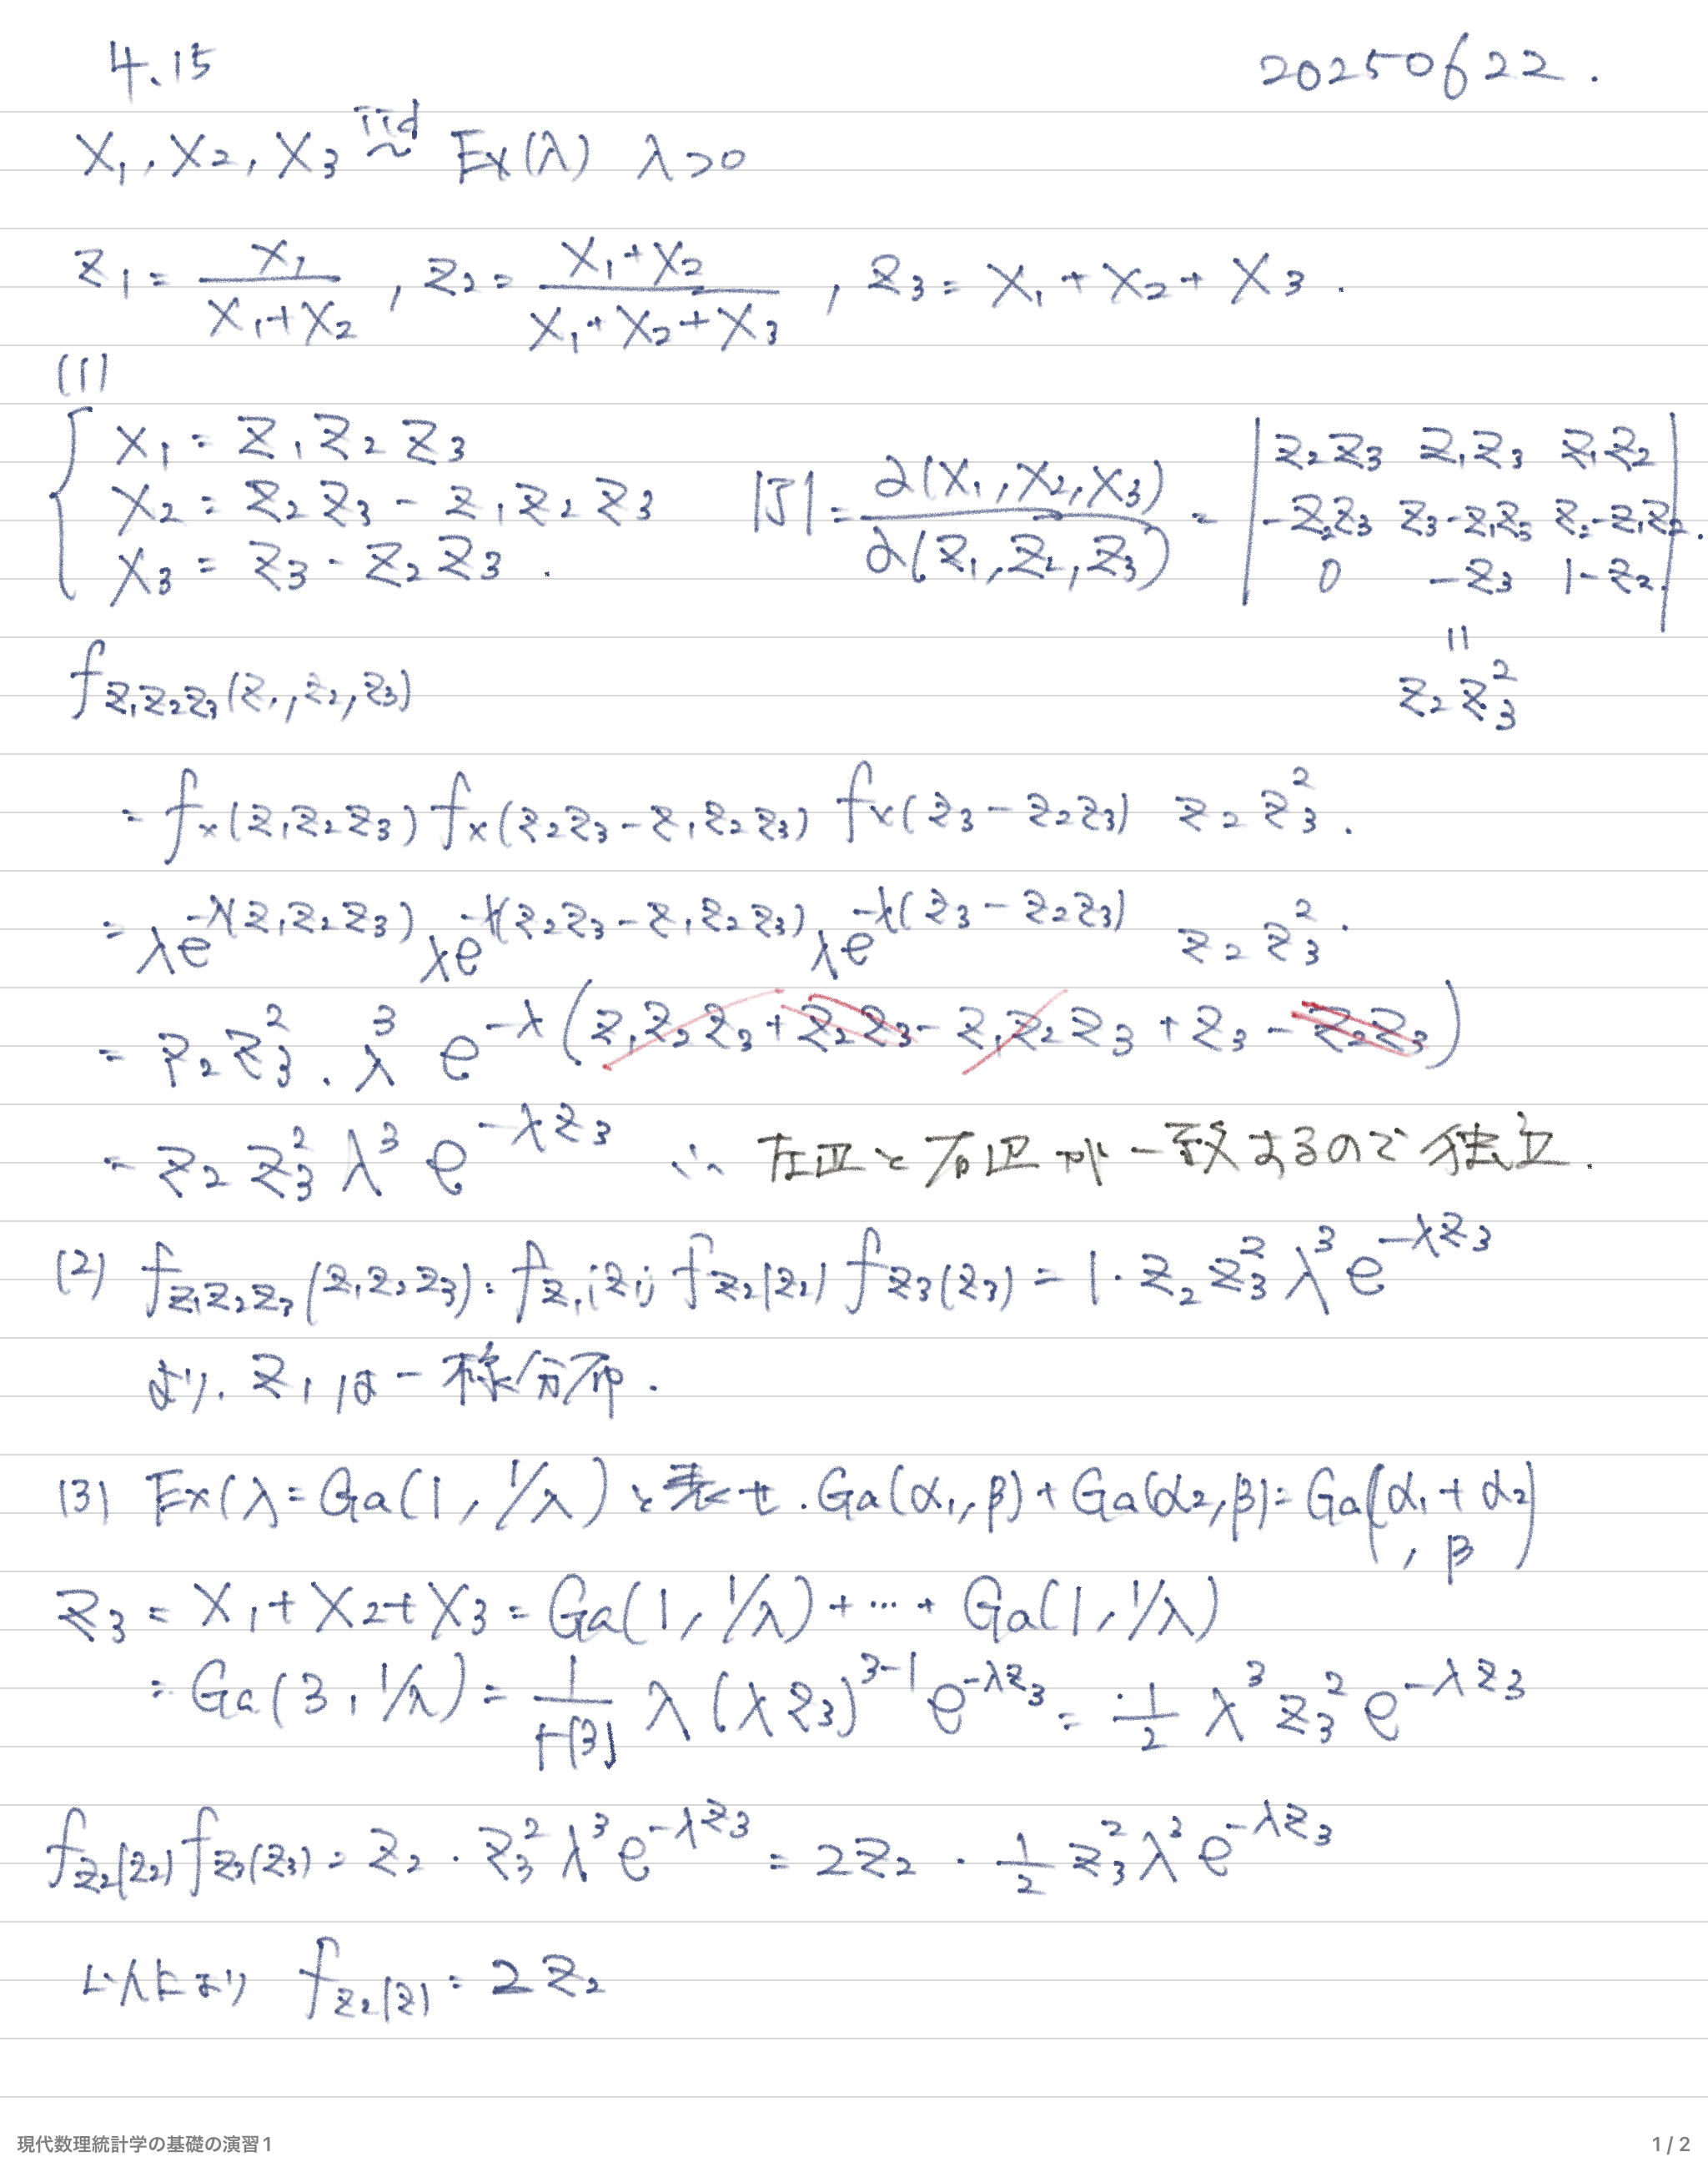 4.15 20250622.
X₁, X₂, X₃ iid~ Ex(λ) λ>0
Z₁ = X₁/(X₁+X₂), Z₂ = (X₁+X₂)/(X₁+X₂+X₃), Z₃ = X₁+X₂+X₃.
(1)
{ X₁ = Z₁Z₂Z₃
X₂ = Z₂Z₃ - Z₁Z₂Z₃
X₃ = Z₃ - Z₂Z₃.
|J| = ∂(X₁,X₂,X₃)/∂(Z₁,Z₂,Z₃) = | Z₂Z₃ Z₁Z₃ Z₁Z₂
-Z₂Z₃ Z₃-Z₁Z₃ Z₂-Z₁Z₂.
0 -Z₃ 1-Z₂. |
=
Z₂Z₃²
f_{Z₁Z₂Z₃}(Z₁,Z₂,Z₃)
= f_X(Z₁Z₂Z₃) f_X(Z₂Z₃-Z₁Z₂Z₃) f_X(Z₃-Z₂Z₃) Z₂Z₃².
= λe^{-λ(Z₁Z₂Z₃)} λe^{-λ(Z₂Z₃-Z₁Z₂Z₃)} λe^{-λ(Z₃-Z₂Z₃)} Z₂Z₃².
= Z₂Z₃².λ³ e^{-λ(Z₁Z₂Z₃+Z₂Z₃-Z₁Z₂Z₃+Z₃-Z₂Z₃)}
= Z₂Z₃²λ³e^{-λZ₃} ∴ 左辺と右辺が一致するので独立.
(2) f_{Z₁Z₂Z₃}(Z₁Z₂Z₃) = f_{Z₁}(Z₁) f_{Z₂}(Z₂) f_{Z₃}(Z₃) = 1·Z₂Z₃²λ³e^{-λZ₃}
より. Z₁は一様分布.
(3) Ex(λ = Ga(1, 1/λ) と表せ. Ga(α₁,β)+Ga(α₂,β) = Ga(α₁+α₂
, β)
Z₃ = X₁+X₂+X₃ = Ga(1, 1/λ)+⋯+Ga(1, 1/λ)
= Ga(3, 1/λ) = 1/Γ(3) λ(λZ₃)^{3-1}e^{-λZ₃} = 1/2 λ³Z₃²e^{-λZ₃}
f_{Z₂}(Z₂) f_{Z₃}(Z₃) = Z₂·Z₃²λ³e^{-λZ₃} = 2Z₂·1/2 Z₃²λ³e^{-λZ₃}
以上により f_{Z₂}(Z) = 2Z₂
現代数理統計学の基礎の演習1 1 / 2